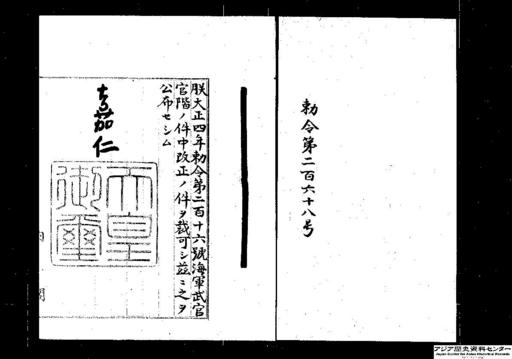 勅令第二百六十八号
朕大正四年勅令第二百十六號海軍武官
官階ノ件中改正ノ件ヲ裁可シ茲ニ之ヲ
公布セシム
嘉仁
天皇
御璽
内
閣
アジア歴史資料センター
Japan Center for Asian Historical Records